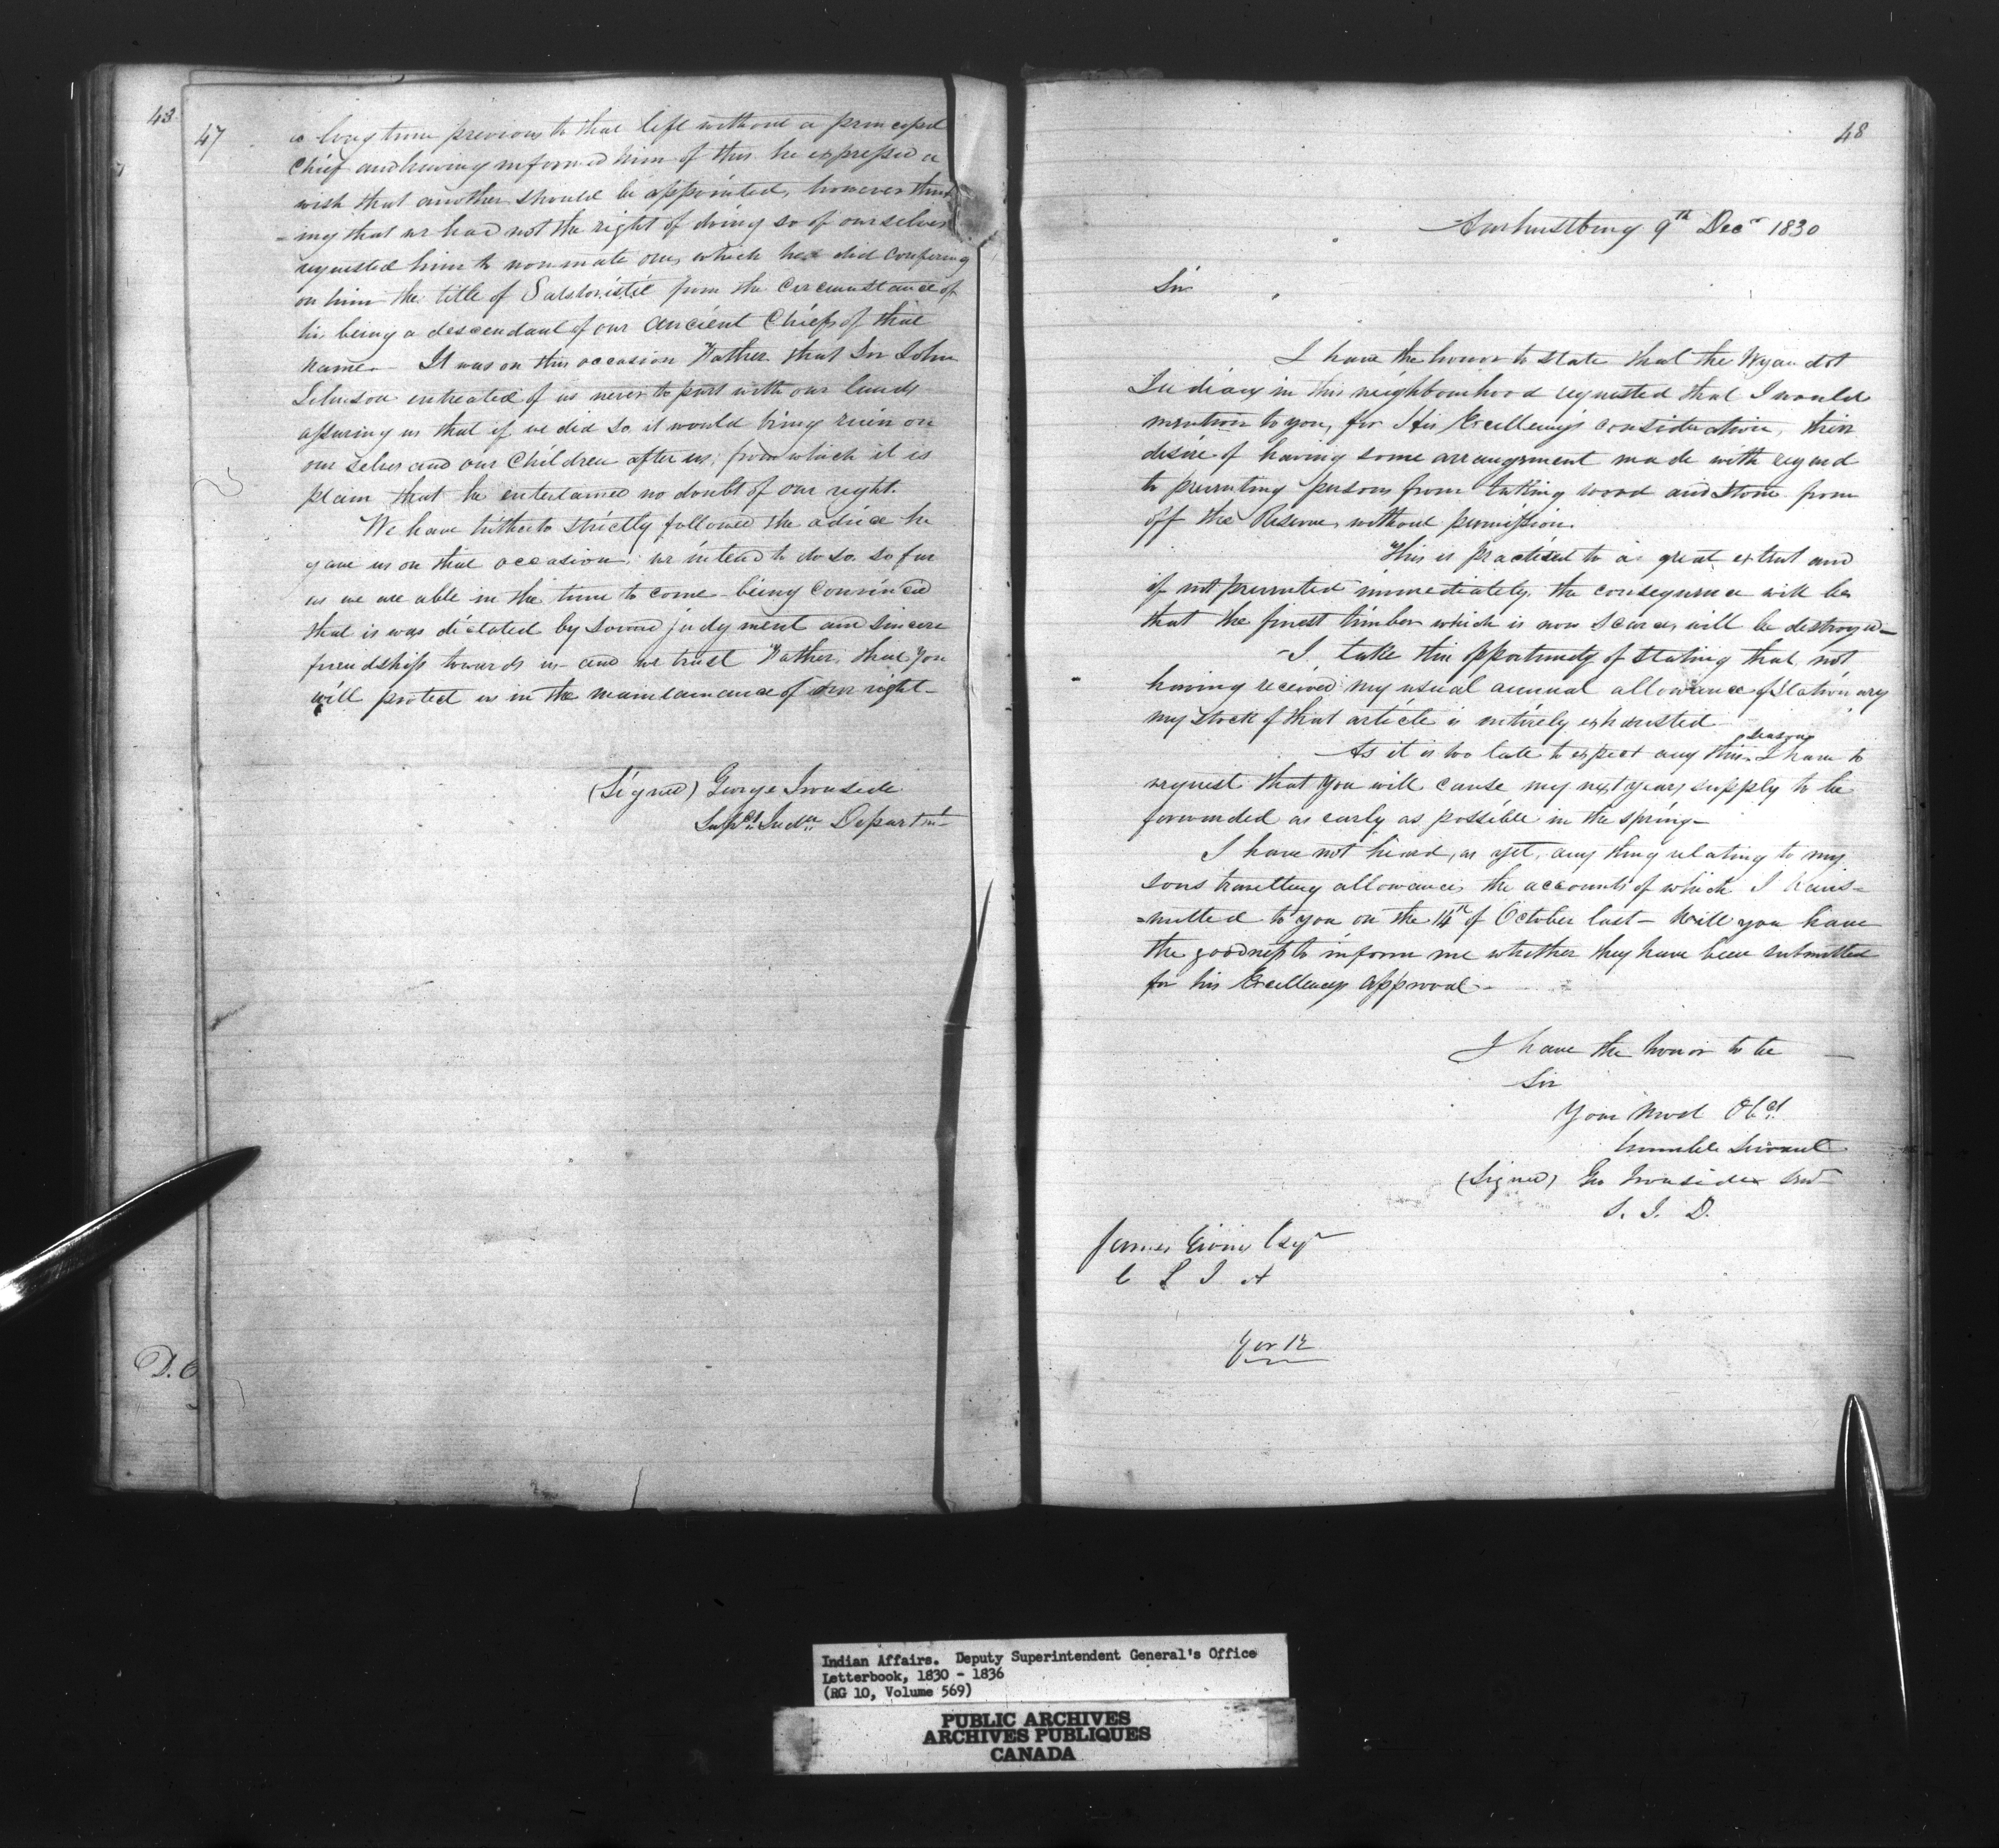 43
47
a long time previous to that left without a principal
Chief and having informed him of this he expressed a
wish that another should be appointed, however think
-ing that we had not the right of doing so of ourselves
requested him to nominate one, which he did confering
on him the title of from the circumstance of
his being a descendant of our ancient Chiefs of that
name. It was on this occasion Father that Sir John
Johnson entreated of us never to part with our lands
assuring us that if we did so it would bring ruin on
our selves and our Children after us; from which it is
plain that he entertained no doubt of our right.
We have hitherto strictly followed the advice he
gave us on that occasion; we intend to do so so far
as we are able in the time to come - being convinced
that is was dictated by sound judgment and sincere
friendship towards us - and we trust Father, that you
will protect us in the maintainance of our right -
(Signed) George Ironside
Supt. Indn. Departmt
D. C
48
Amherstburg 9th Decr 1830
Sir
I have the honor to state that the Wyandot
Indians in this neighbourhood requested that I would
mention to you, for His Excellency's consideration, their
desire of having some arrangement made with regard
to preventing persons from taking wood and stone from
off the Reserve, without permission.
This is practised to a great extent and
if not prevented immediately the consequence will be
that the finest timber which is now scarce, will be destroyed -
- I take this opportunity of stating that not
having received my usual annual allowance of Stationary
my stock of that article is entirely exhausted
As it is too late to expect any this season I have to
request that you will cause my next years supply to be
forwarded as early as possible in the spring -
I have not heard, as yet, any thing relating to my
sons travelling allowance, the accounts of which I trans-
=mitted to you on the 14th of October last - Will you have
the goodness to inform me whether they have been submitted
for his Excellencys approval -
I have the honor to be
Sir
Your Most Obt.
humble Servant
(Signed) Geo Ironside
S. I. D.
James Givins Esqr
C S I A
York
Indian Affairs. Deputy Superintendent General's Office
Letterbook, 1830 - 1836
(RG 10, Volume 569)
PUBLIC ARCHIVES
ARCHIVES PUBLIQUES
CANADA